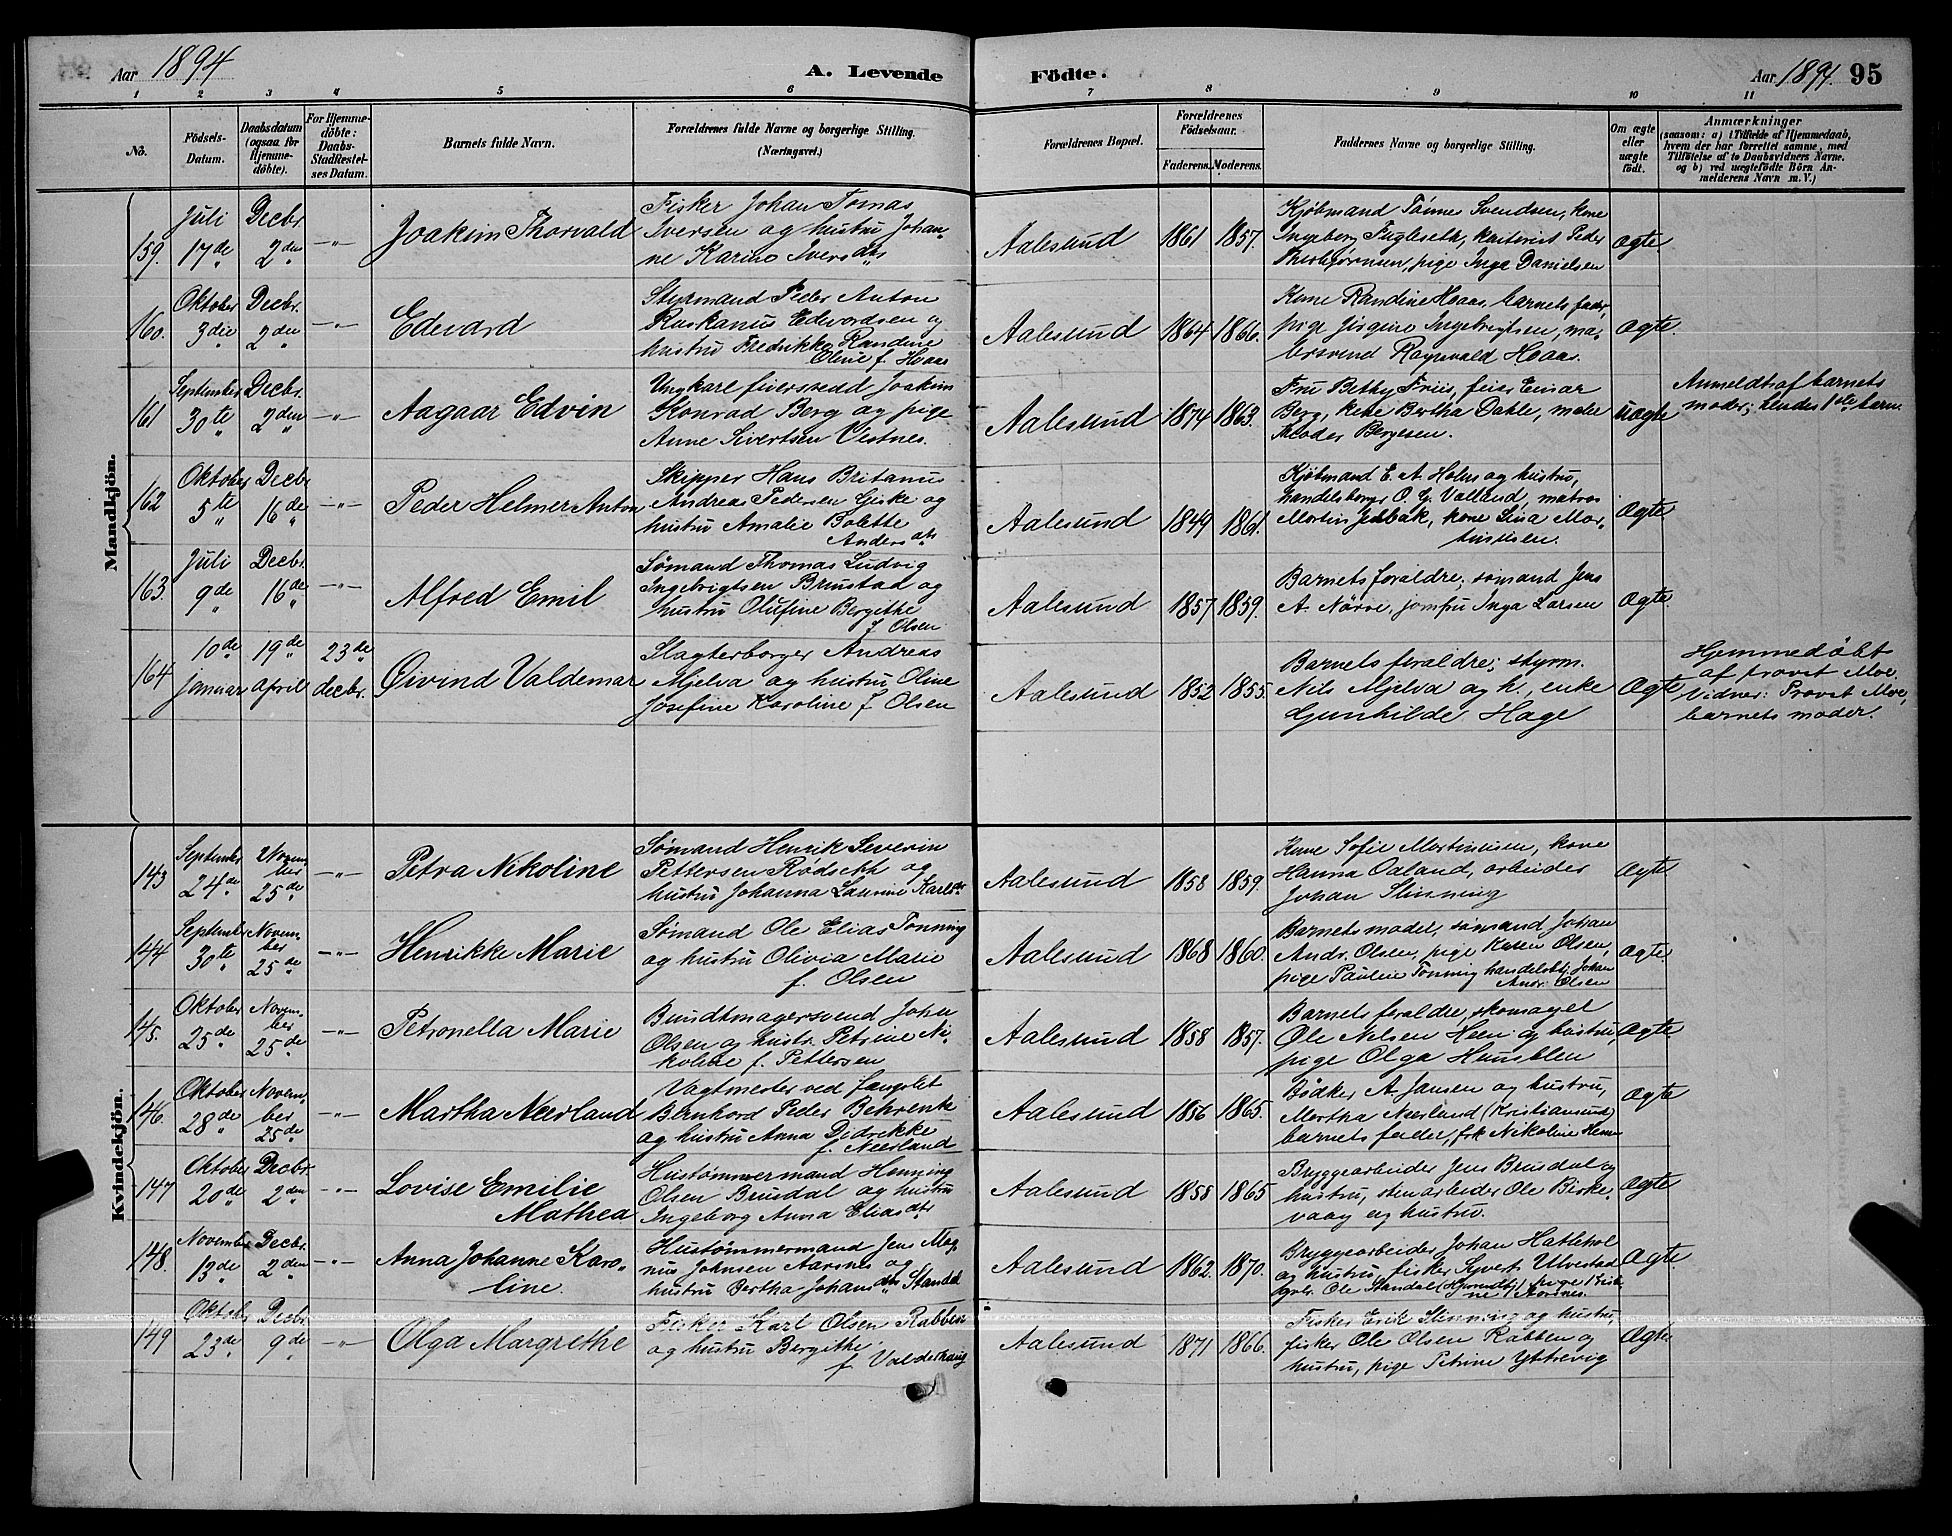 Aar 1894
A. Levende
Födte.
Aar 1894. 95
1 2 3 4 5 6 7 8 9 10 11
No.
Födsels-Datum.
Daabsdatum (ogsaa for Hjemmedöbte).
For Hjemmedöbte: Daabs-Stadfæstelses Datum.
Barnets fulde Navn.
Forældrenes fulde Navne og borgerlige Stilling. (Næringsvei.)
Forældrenes Bopæl.
Forældrenes Födselsaar.
Faderens. Moderens.
Faddernes Navne og borgerlige Stilling.
Om ægte eller uægte födt.
Anmærkninger
(saasom: a) i Tilfælde af Hjemmedaab, hvem der har forrettet samme, med Tilföielse af to Daabsvidners Navne, og b) ved uægtefödte Börn Anmelderens Navn m. V.)
Mandkjön.
159. Juli 17de Decbr. 2den -"- Joakim Thorvald
Fisker Johan Tomas
Iversen og hustru Johan-
ne Karine Iversdtr
Aalesund 1861 1857.
Kjøbmand Tønne Svendsen, kone
Ingeborg Fugleseth, Peder
Thorbjørnsen, pige Inga Danielsen
Ægte.
160. Oktober 3die Decbr. 2den -"- Edevard
Styrmand Peder Anton
Edvardsen og
hustru Fredrikke Randine
Oline f. Hoaas
Aalesund 1864 1866.
Kone Randine Hoaas, barnets fader,
pige Ingebrigtsen, ma-
lersvend Ragnvald Hoaas.
Ægte.
161 September 30te Decbr. 2den -"- Aagaar Edvin
Ungkarl feiersvend Joakim
Konrad Berg og pige
Anne Sivertsen Vestnes.
Aalesund 1874 1863.
Fru Bethy Friis, feier Einar
Berg, kone Bertha Dahle, maler
Theodor Bergesen.
uægte
Anmeldt af barnets
moder; hendes 1ste barn.
162 Oktober 5te Decbr 16de -"- Peder Helmer Anton
Skipper Hans Britanus
Andreas Pedersen Giske og
hustru Amalie Bolette
Andersdtr
Aalesund 1849 1861.
Kjøbmand E. A. Holm og hustru,
handelsborger O. G. Valland, matros
Martin, kone Lina Mar-
tinusen.
Ægte
163. Juli 9de Decbr. 16de -"- Alfred Emil
Sømand Thomas Ludvig
Ingebrigtsen Brunstad og
hustru Olufine Bergithe
f Olsen
Aalesund 1857 1859.
Barnets forældre; sømand Jens
A. Nørve, jomfru Inga Larsen
Ægte.
164 10de januar 19de April 23de decbr. Øivind Valdemar
Slagterborger Andreas
Mjelva og hustru Oline
Josefine Karoline f Olsen
Aalesund 1852 1855.
Barnets forældre; styrm.
Nils Mjelva og h., enke
Gunhilde Hage
Ægte
Hjemmedøbt
af provst Moe.
Vidner: Provst Moe,
barnets moder.
Kvindekjön.
143 September 24de Novem-ber 25de -"- Petra Nikoline
Sømand Henrik Severin
Pettersen Rødseth og
hustru Johanna Laurine Karlsdtr
Aalesund 1858 1859.
Kone Sofie Martinusen, kone
Hanna Oaland, arbeider
Johan Slinning
Ægte
144 September 30te Novem-ber 25de -"- Henrikke Marie
Sømand Ole Elias Tonning
og hustru Olivia Marie
f. Olsen
Aalesund 1868 1860.
Barnets moder, sømand Johan
Andr. Olsen, pige Karen Olsen,
pige Pauline Tonning handelsbtj. Johan
Andr. Olsen
ægte.
145. Oktober 25de Novem-ber 25de -"- Petronella Marie
Bundtmagersvend Johan
Olsen og hustr. Petrine Ni-
koline f. Pettersen
Aalesund 1858 1857.
Barnets forældre, skomager
Ole Nilsen Heen og hustru,
pige Olga Hunsblen
Ægte.
146. Oktober 28de Novem-ber 25de -"- Martha Neerland
Vagtmester ved fængslet
Bernhard Peder Behrentz
og hustru Anna Didrekke
f. Neerland
Aalesund 1856 1865.
Bødker A. Jansen og hustru,
Martha Neerland (Kristiansund)
barnets fader, frk Nikoline
Ægte
147 Oktober 20de Decbr. 2den -"- Lovise Emilie
Mathea
Hustømmermand Henning
Olsen Brusdal og hustru
Ingeborg Anna Eliasdtr
Aalesund 1858 1865
Bryggearbeider Jens Brusdal og
hustru, stenarbeider Ole Birke-
vaag og hustru.
Ægte
148. November 13de Decbr. 2den -"- Anna Johanne Karo-
line.
Hustømmermand Jens Mag-
nus Johnsen Aarsnes og
hustru Bertha Johansdtr Standal
Aalesund 1862. 1870.
Bryggearbeider Johan Hatlehol
og hustru, fisker Syvert Ulvestad
Ole Standal (Hjørundfj.) pige
Aarsnes.
Ægte
149 Oktober 23de Decbr. 9de -"- Olga Margrethe
Fisker Karl Olsen Rabben
og hustru Bergithe
f Valderhaug
Aalesund 1871 1866.
Fisker Erik Slinning og hustru,
fisker Ole Olsen Rabben og
hustru, pige Petrine Yttrevig
Ægte